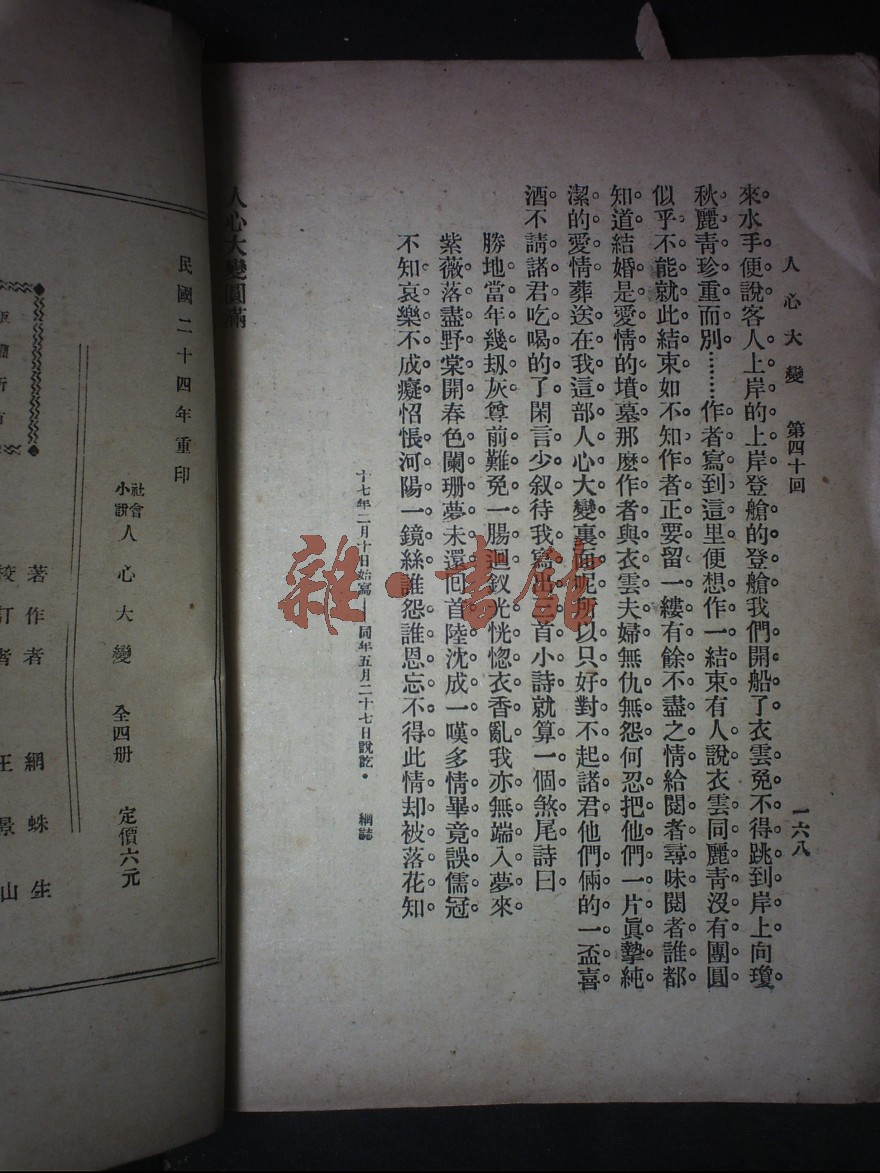 人心大變　第四十回　一六八
來水手便說客人上岸的上岸登艙的登艙我們開船了衣雲免不得跳到岸上向瓊
秋麗青珍重而別………作者寫到這里便想作一結束有人說衣雲同麗青沒有團圓
似乎不能就此結束如不知作者正要留一縷有餘不盡之情給閱者尋味閱者誰都
知道結婚是愛情的墳墓那麽作者與衣雲夫婦無仇無怨何忍把他們一片眞摯純
潔的愛情葬送在我這部人心大變裏面呢所以只好對不起諸君他們倆的一盃喜
酒不請諸君吃喝的了閑言少叙待我寫出三首小詩就算一個煞尾詩曰
勝地當年幾刼灰尊前難免一腸迴釵光恍惚衣香亂我亦無端入夢來
紫薇落盡野棠開春色闌珊夢未還回首陸沈成一嘆多情畢竟誤儒冠
不知哀樂不成癡怊悵河陽一鏡絲誰怨誰恩忘不得此情却被落花知
十七年二月十日始寫——同年五月二十七日說訖。　網誌
人心大變圓滿
民國二十四年重印
社會小說　人心大變　全四册　定價六元
著作者　網蛛生
校訂者　王景山
雜·書館